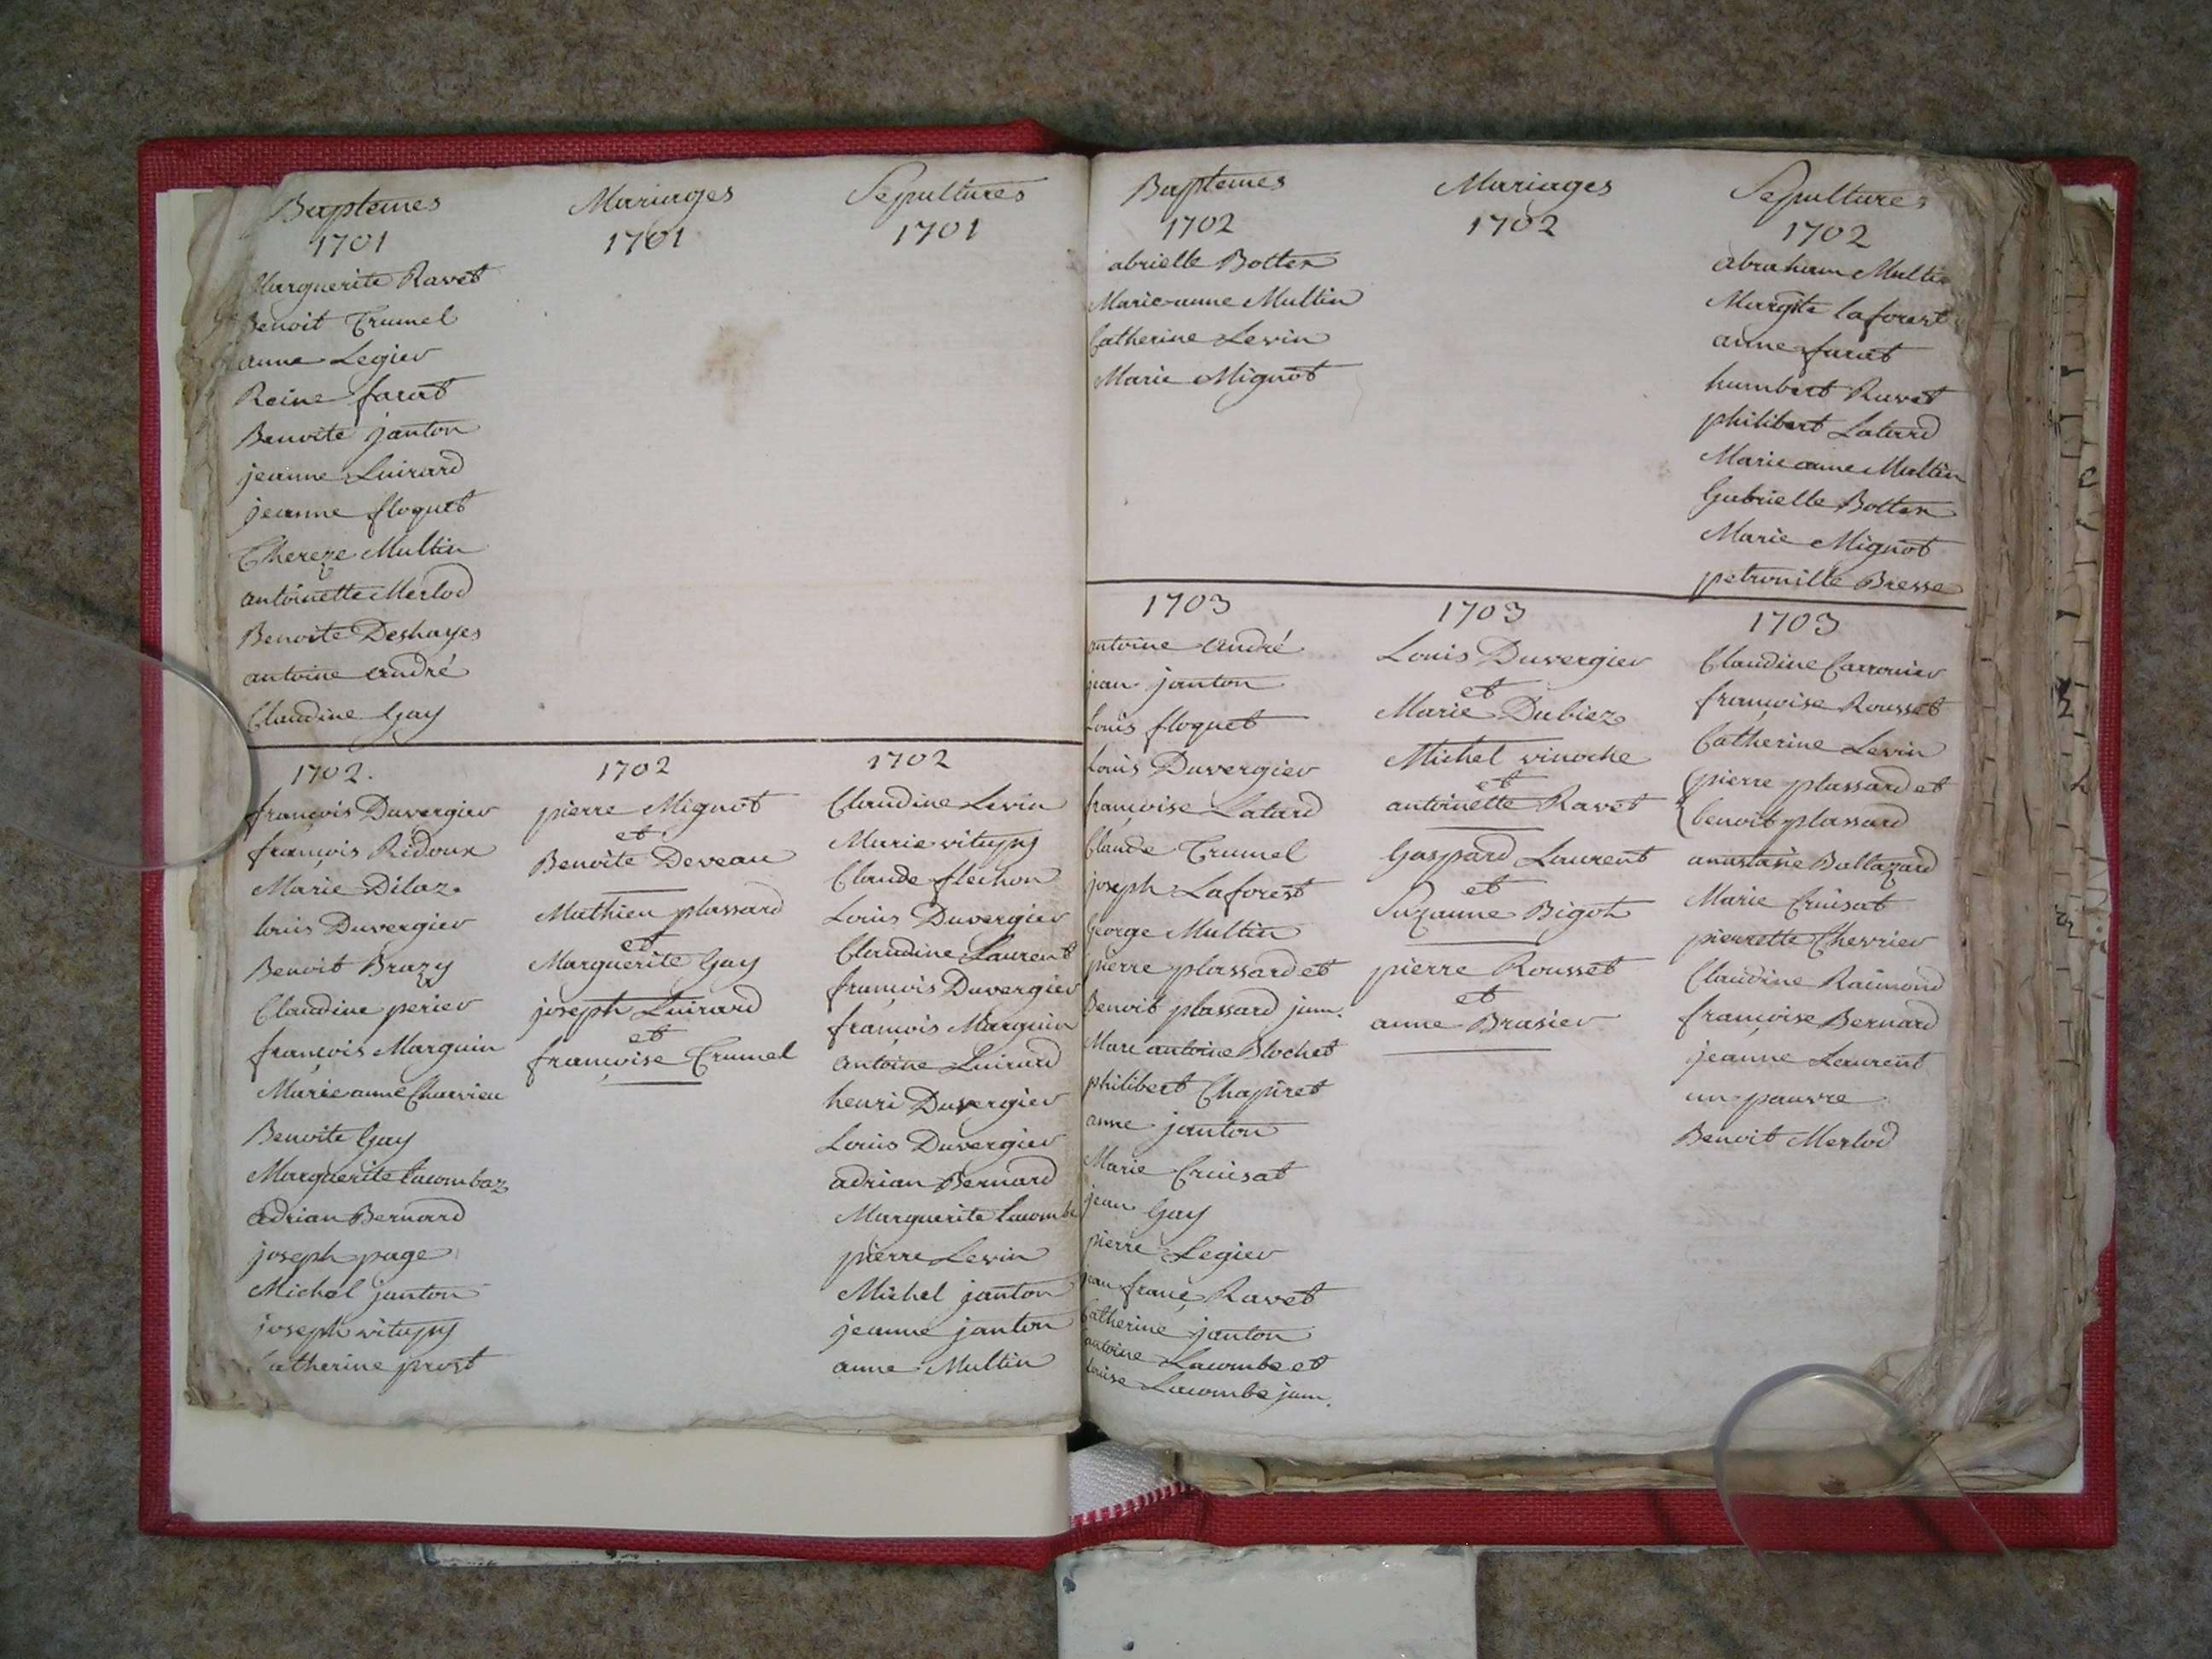 Baptemes
1701
Marguerite Ravet
Benoit Trumel
anne Legier
Reine farat
Benoite janton
jeanne Luirard
jeanne floquet
Thereze Multin
antoinette Merlod
Benoite Deshayes
antoine andré
Claudine Gay
Mariages
1701
Sepultures
1701
1702.
françois Duvergier
françois Ridoux
Marie Dilaz.
louis Duvergier
Benoit Brazy
Claudine perier
françois Marguin
Marie anne Charvieu
Benoite Gay
Marguerite Lacombaz
adrian Bernard
joseph page
Michel janton
joseph vitupy
Catherine prost
1702
pierre Mignot
et
Benoite Deveau
Mathieu plassard
et
Marguerite Gay
joseph Luirard
et
françoise Trumel
1702
Claudine Levin
Marie vitupy
Claude flechon
Louis Duvergier
Claudine Laurent
françois Duvergier
françois Marguin
antoine Luirard
henri Duvergier
Louis Duvergier
adrian Bernard
Marguerite Lacombe
pierre Levin
Michel janton
jeanne janton
anne Multin
Baptemes
1702
abrielle Botten
Marie-anne Multin
Catherine Levin
Marie Mignot
Mariages
1702
Sepultures
1702
abraham Multin
Margte laforest
anne farat
humbert Ravet
philibert Latard
Marie anne Multin
Gabrielle Botten
Marie Mignot
petronille Bresse
1703
antoine andré
jean janton
Louis floquet
Louis Duvergier
françoise Latard
Claude Trumel
joseph Laforest
George Multin
pierre plassard et
Benoit plassard jum.
Marc antoine Blochet
philibert Chapiret
anne janton
Marie Cruisat
jean Gay
pierre Legier
jean franç Ravet
Catherine janton
antoine Lacombe et
Louise Lacombe jum.
1703
Louis Duvergier
et
Marie Dubiez
Michel vinoche
et
antoinette Ravet
Gaspard Laurent
et
Suzanne Bigot
pierre Rousset
et
anne Brasier
1703
Claudine Carronier
françoise Rousset
Catherine Levin
pierre plassard et
benoit plassard
anastasie Baltazard
Marie Cruisat
pierrette Chevrier
Claudine Raimond
françoise Bernard
jeanne Laurent
un pauvre
Benoit Merlod